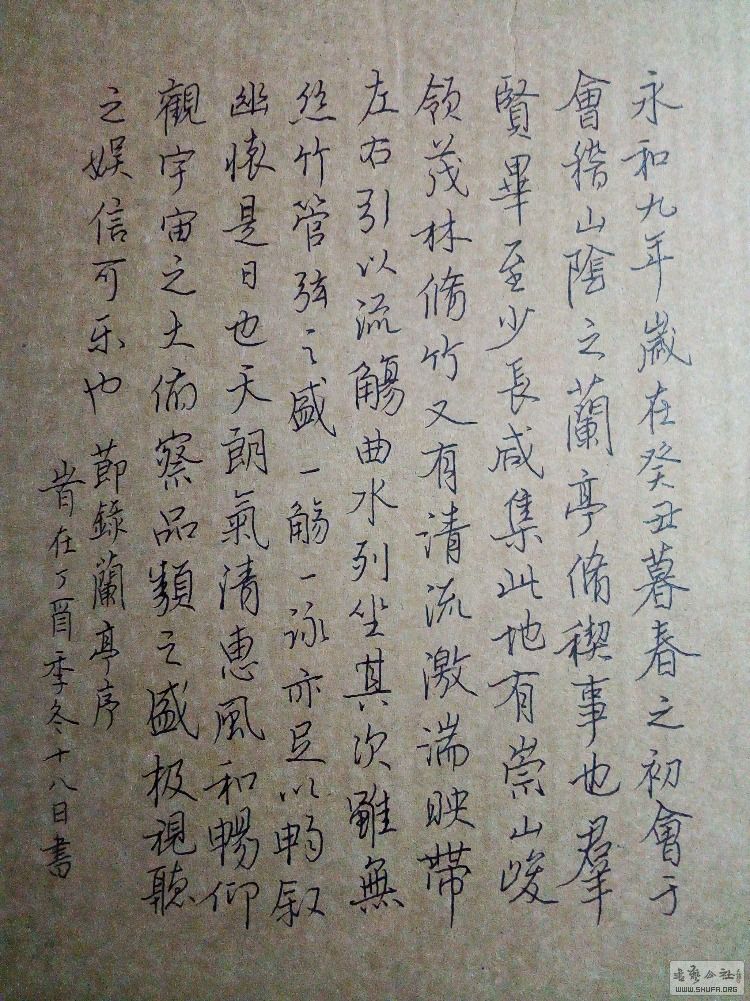 永和九年歲在癸丑暮春之初會于
會稽山陰之蘭亭脩稧事也羣
賢畢至少長咸集此地有崇山峻
領茂林脩竹又有清流激湍映帶
左右引以流觴曲水列坐其次雖無
丝竹管弦之盛一觴一詠亦足以暢叙
幽懐是日也天朗氣清惠風和暢仰
觀宇宙之大俯察品類之盛极視聽
之娱信可乐也 節録蘭亭序
旹在丁酉季冬十八日書
WWW.SHUFA.ORG